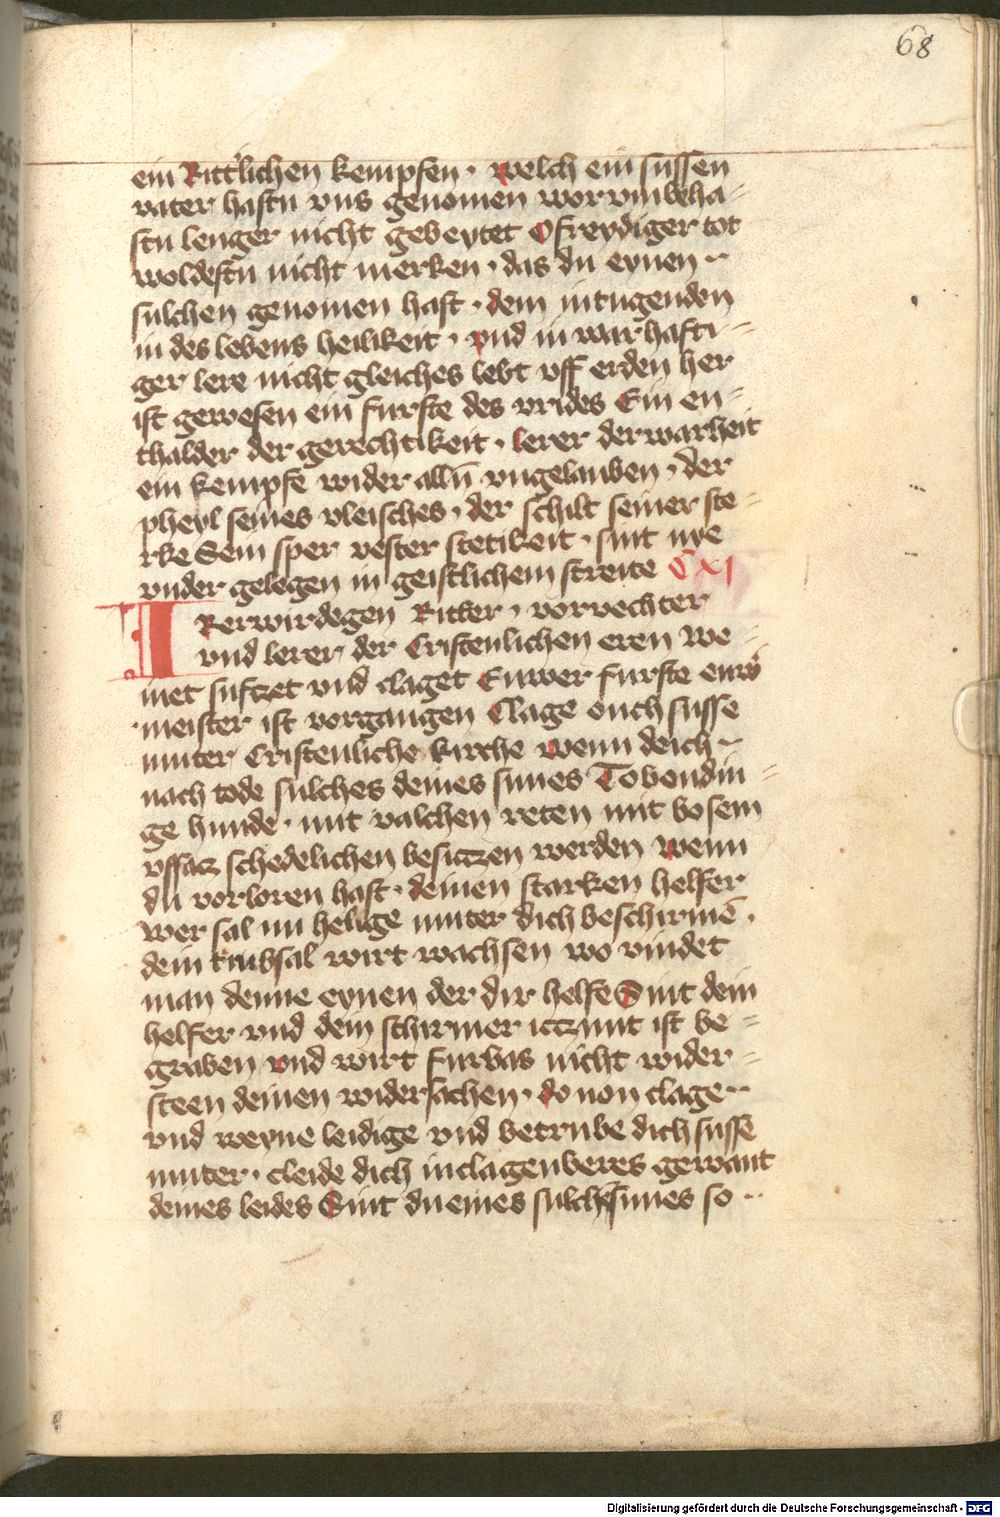 68
ein Rittˀlichen kempfen · welch ein sussen
vater hastu vns genomen worvmbeha-
stu lenger nicht gebeytet O freydiger tot
woldestu nicht merken · das du eynen ··
sulchen genomen hast · dem in tugenden
in des lebens heilikeit · vnd in warhafti-
ger lere nicht gleiches lebt vff erden her
ist gewesen ein furste des vrides Ein en-
thalder der gerechtikeit · lerer der warheit
ein kempfe wider alln̄ vngelauben · der
pheyl seines vleisches · der schilt seiner ste-
rke Sein sper vester stetikeit · sint nye
vnder gelegen in geistlichem streite CXI
IR erwirdegen Ritter · vorvechter
vnd lerer der Cristenlichen eren we-
inet sufczet vnd claget Euwer furste euwˀ
meister ist vorgangen Clage ouch susse
muter Cristenliche kirche wenn deich ··
nach tode sulches deines sunes Tobendin-
ge hunde · mit valchen reten mit bosem
vffacz schedelichen besiczzen werden wenn
du vorloren hast · deinen starken helfer
wer sal nu helige muter dich beschirmē ·
dein trubsal wirt wachsen wo vindet
man denne eynen der dir helfe Sint dein
helfer vnd dein schirmer iczzunt ist be-
graben vnd wirt furbas nicht wider-
steen deinen widersachen · do von clage ··
vnd weyne leidige vnd betrube dich susse
muter · cleide dich in clagenberes gewant
deines leides Sint du eines sulchē sunes so ··
Digitalisierung gefördert durch die Deutsche Forschungsgemeinschaft - DFG